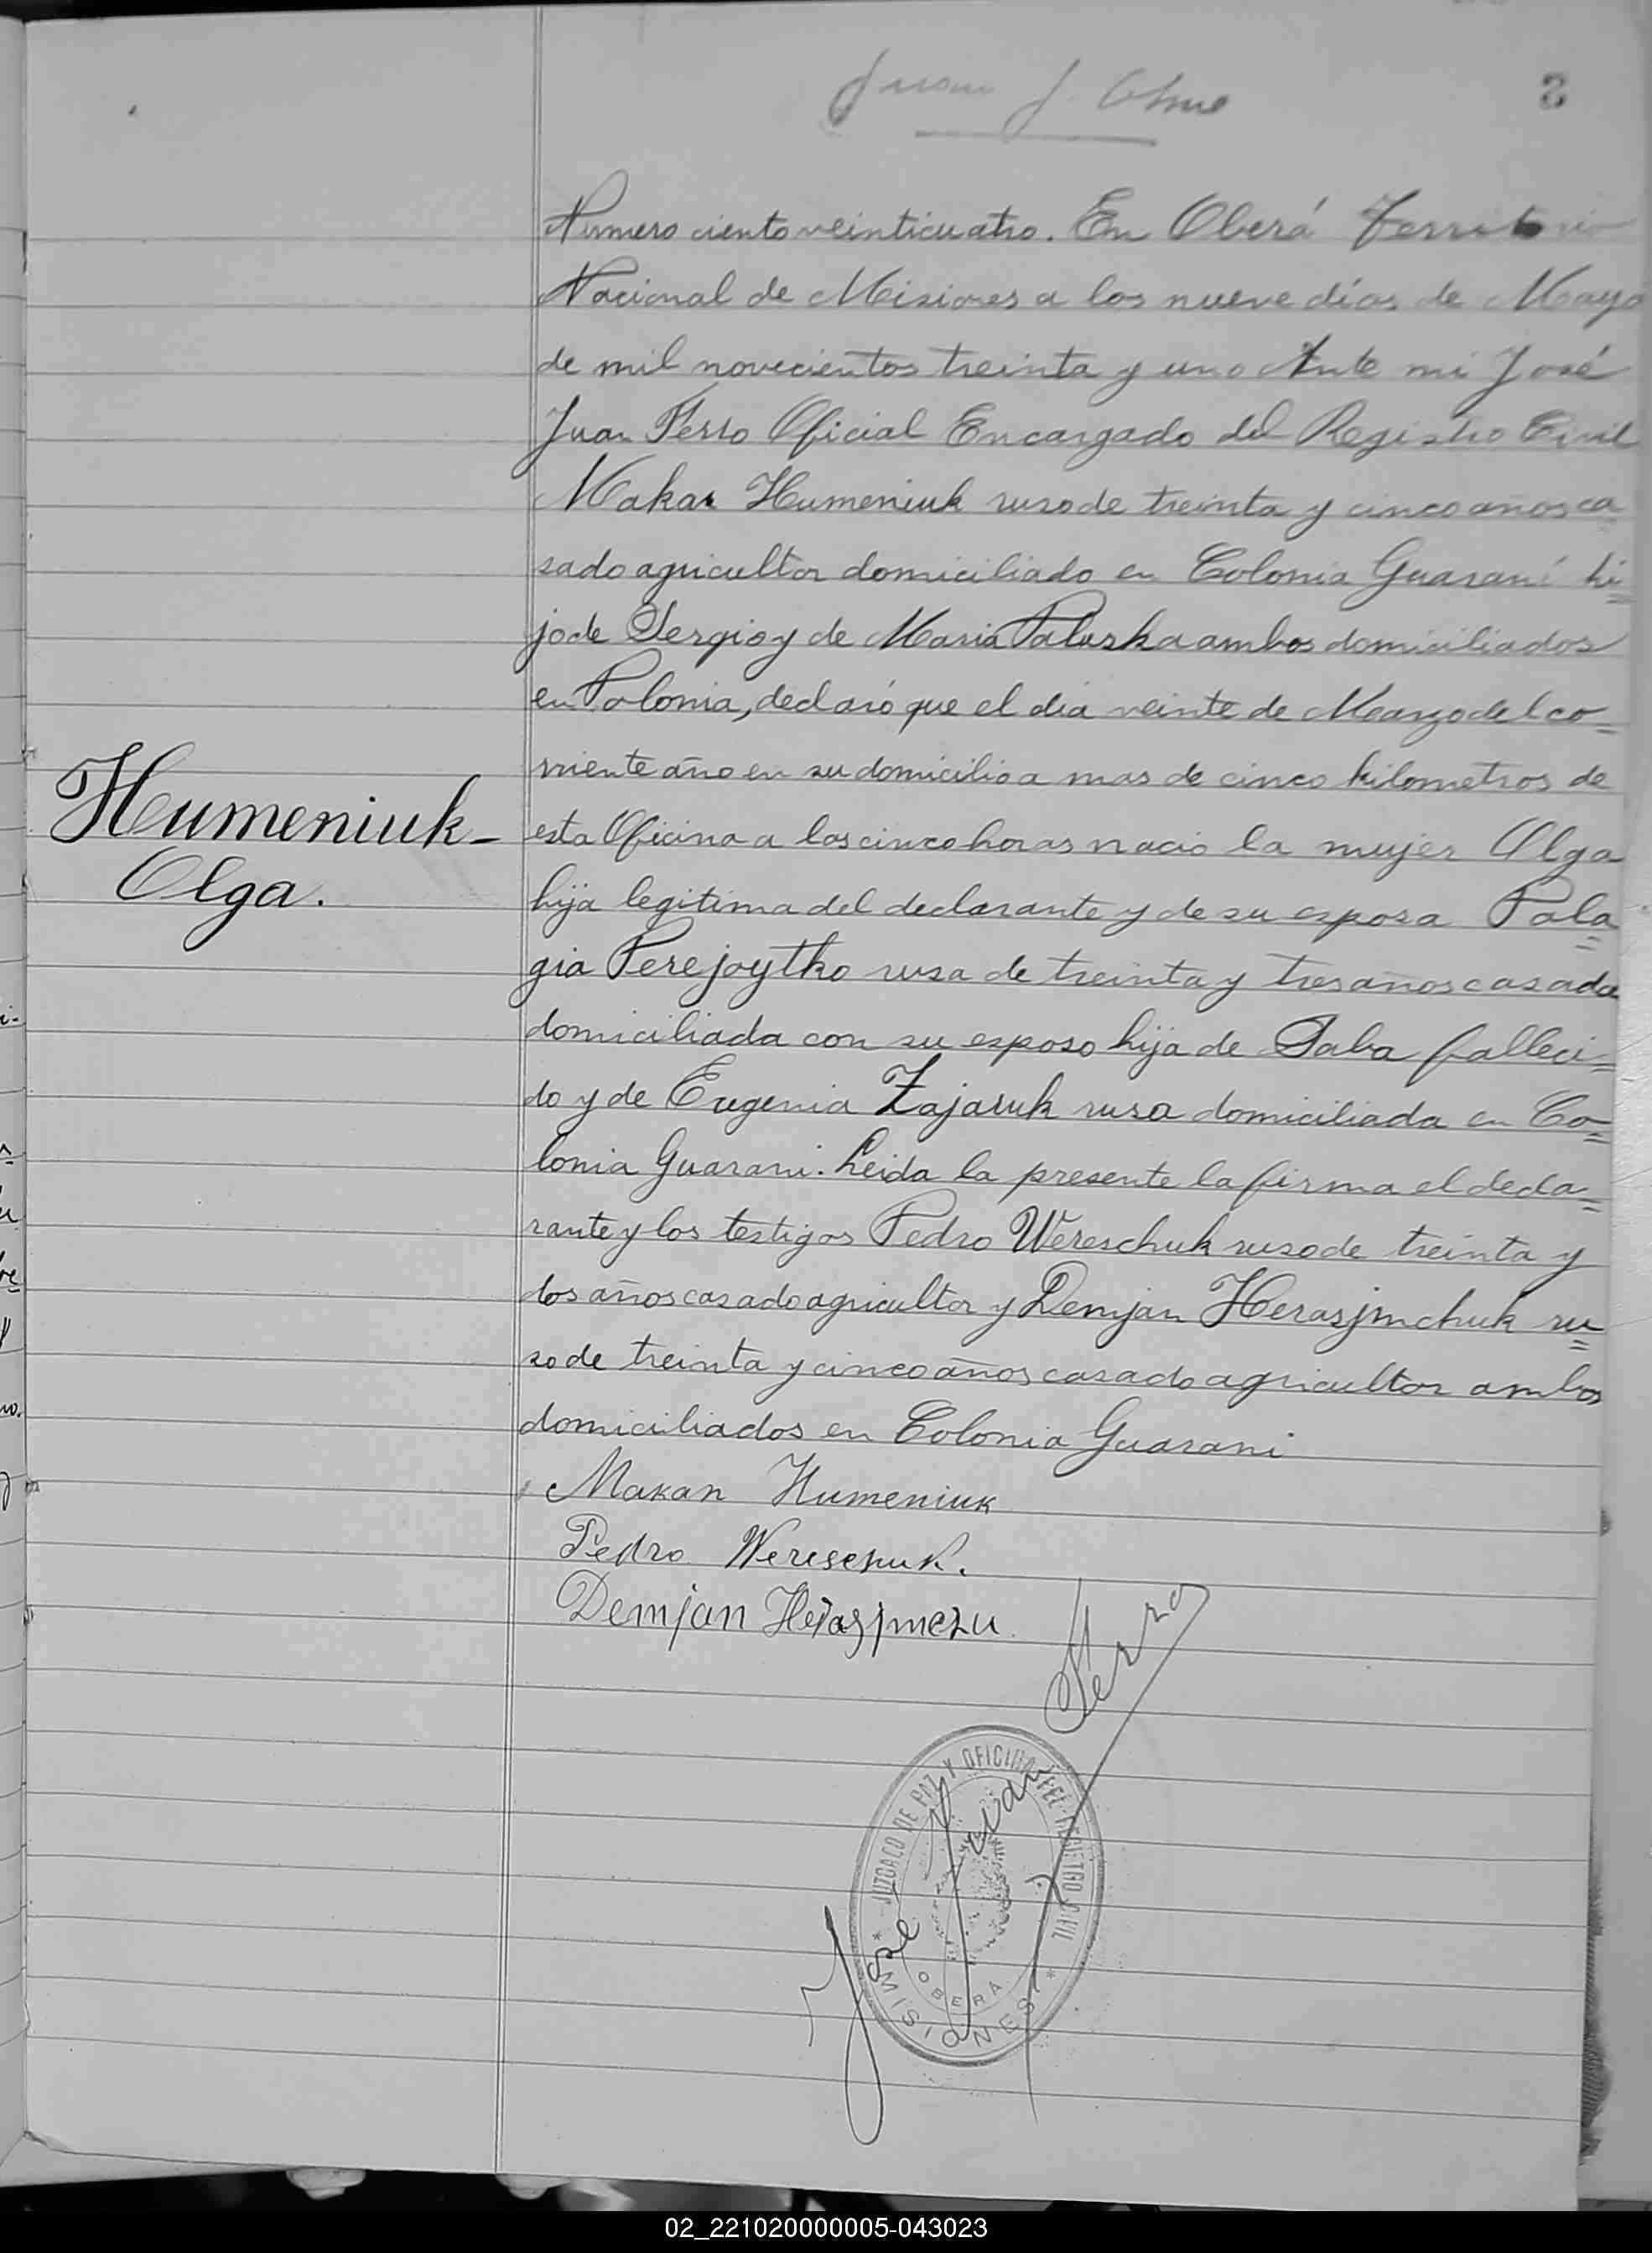 Juan J.
2
Numero ciento veinticuatro. En Oberá Territorio
Nacional de Misiones a los nueve días de Mayo
de mil novecientos treinta y uno Ante mi José
Juan Ferro Oficial Encargado del Registro Civil
Makar Humeniuk ruso de treinta y cinco años ca
sado agricultor domiciliado en Colonia Guaraní hi=
jo de Sergio y de Maria Paluska ambos domiciliados
en Polonia, declaró que el día veinte de Marzo del co=
rriente año en su domicilio a mas de cinco kilometros de
Humeniuk-
Olga.
esta Oficina a las cinco horas nació la mujer Olga
hija legitima del declarante y de su esposa Pala=
gia Perejoytko rusa de treinta y tres años casada
domiciliada con su esposo hija de Saba falleci=
do y de Eugenia Zajaruk rusa domiciliada en Co=
lonia Guarani. Leida la presente la firma el decla=
rante y los testigos Pedro Wereschuk ruso de treinta y
dos años casado agricultor y Demjan Herasjmchuk ru=
so de treinta y cinco años casado agricultor ambos
domiciliados en Colonia Guarani
Makar Humeniuk
Pedro Wereschuk.
Demjan Herasjmczu
José Juan Ferro
JUZGADO DE PAZ Y OFICINA DEL REGISTRO CIVIL
OBERÁ
* MISIONES *
02_221020000005-043023